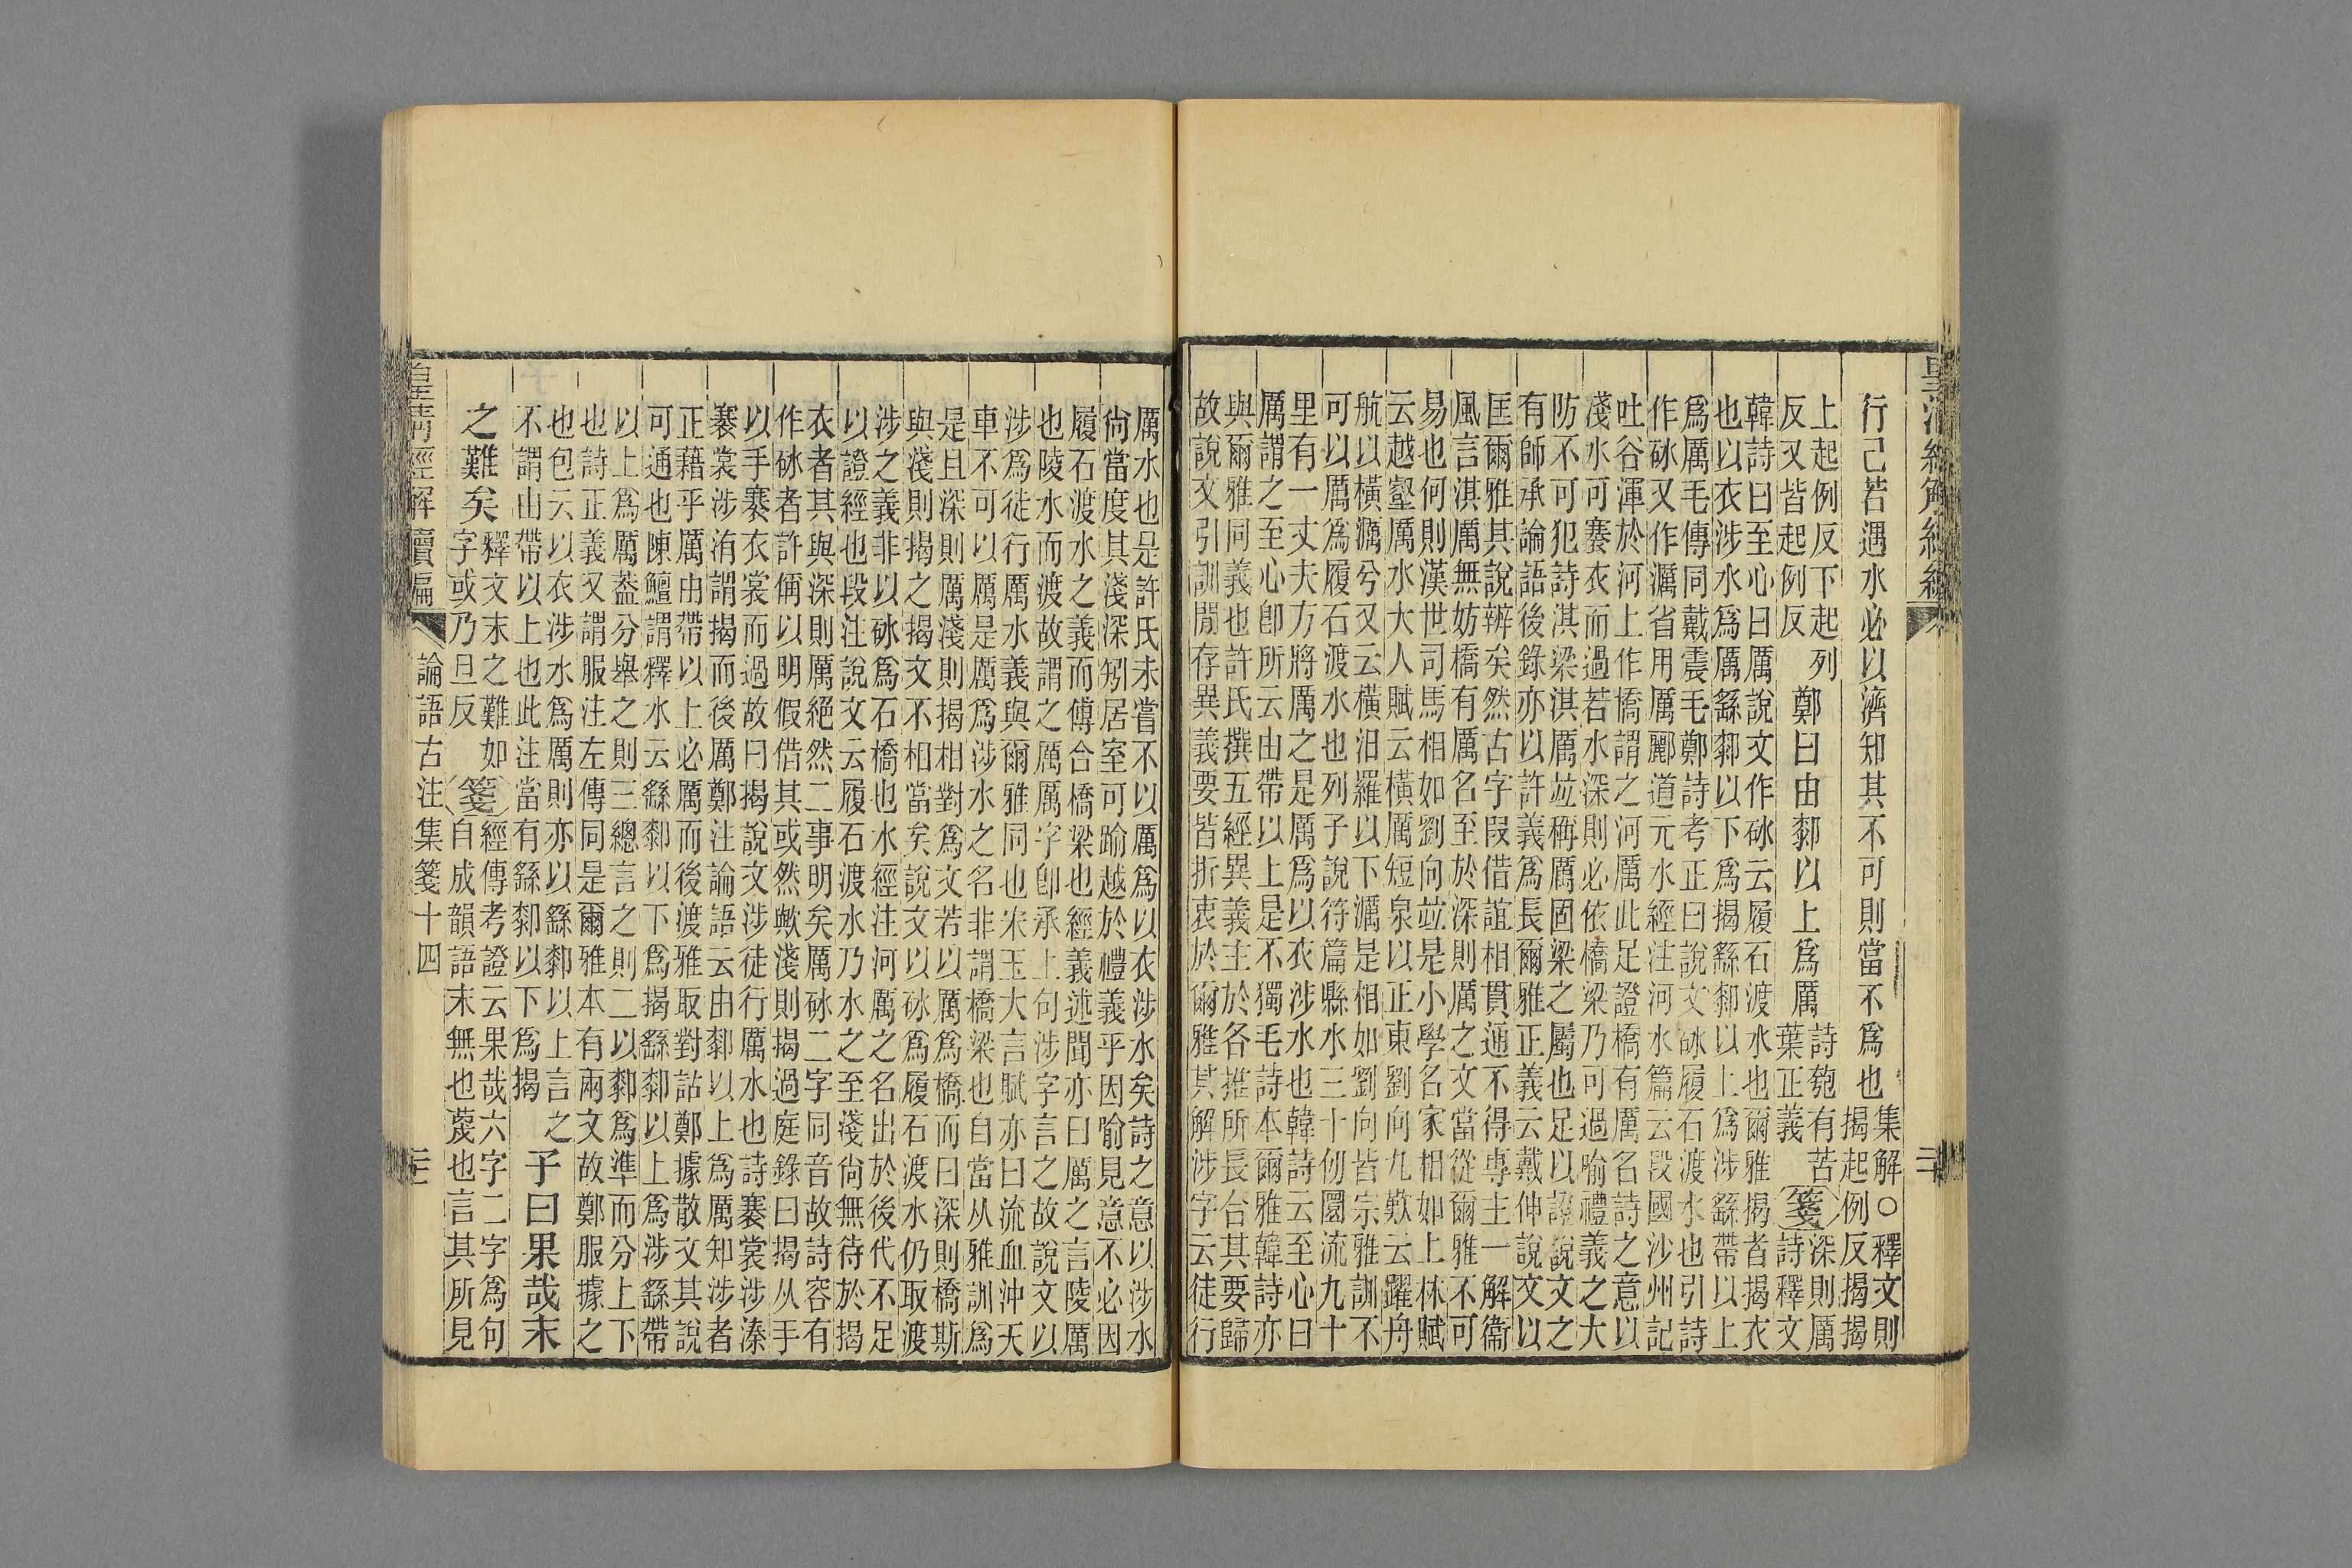 行己若遇水必以濟知其不可則當不爲也集解○釋文則
揭起例反揭揭
上起例反下起列
反又皆起例反
鄭曰由䣛以上爲厲
詩匏有苦
葉正義
箋
深則厲
詩釋文
韓詩曰至心曰厲說文作砅云履石渡水也爾雅揭者揭衣
也以衣涉水爲厲繇䣛以下爲揭繇䣛以上爲涉繇帶以上
爲厲毛傳同戴震毛鄭詩考正曰說文砅履石渡水也引詩
作砅又作濿省用厲酈道元水經注河水篇云段國沙州記
吐谷渾於河上作橋謂之河厲此足證橋有厲名詩之意以
淺水可褰衣而過若水深則必依橋梁乃可過喻禮義之大
防不可犯詩淇梁淇厲竝稱厲固梁之屬也足以證說文之
有師承論語後錄亦以許義爲長爾雅正義云戴伸說文以
匡爾雅其說辨矣然古字叚借誼相貫通不得專主一解衞
風言淇厲無妨橋有厲名至於深則厲之文當從爾雅不可
易也何則漢世司馬相如劉向竝是小學名家相如上林賦
云越壑厲水大人賦云橫厲短泉以正東劉向九歎云躍舟
航以橫濿兮又云橫汨羅以下濿是相如劉向皆宗雅訓不
可以厲爲履石渡水也列子說符篇縣水三十仞圜流九十
里有一丈夫方將厲之是厲爲以衣涉水也韓詩云至心曰
厲謂之至心卽所云由帶以上是不獨毛詩本爾雅韓詩亦
與爾雅同義也許氏撰五經異義主於各推所長合其要歸
故說文引訓閒存異義要皆折衷於爾雅其解涉字云徒行
厲水也是許氏未嘗不以厲爲以衣涉水矣詩之意以涉水
尙當度其淺深矧居室可踰越於禮義乎因喻見意不必因
履石渡水之義而傅合橋梁也經義述聞亦曰厲之言陵厲
也陵水而渡故謂之厲厲字卽承上句涉字言之故說文以
涉爲徒行厲水義與爾雅同也宋玉大言賦亦曰流血沖天
車不可以厲是厲爲涉水之名非謂橋梁也自當从雅訓爲
是且深則厲淺則揭相對爲文若以厲爲橋而曰深則橋斯
與淺則揭之揭文不相當矣說文以砅爲履石渡水仍取渡
涉之義非以砅爲石橋也水經注河厲之名出於後代不足
以證經也段注說文云履石渡水乃水之至淺尙無待於揭
衣者其與深則厲絕然二事明矣厲砅二字同音故詩容有
作砅者許偁以明假借其或然歟淺則揭過庭錄曰揭从手
以手褰衣裳而過故曰揭說文涉徒行厲水也詩褰裳涉溱
褰裳涉洧謂揭而後厲鄭注論語云由䣛以上爲厲知涉者
正藉乎厲由帶以上必厲而後渡雅取對詁鄭據散文其說
可通也陳鱣謂釋水云繇䣛以下爲揭繇䣛以上爲涉繇帶
以上爲厲葢分舉之則三總言之則二以䣛爲準而分上下
也詩正義又謂服注左傳同是爾雅本有兩文故鄭服據之
也包云以衣涉水爲厲則亦以繇䣛以上言之
不謂由帶以上也此注當有繇䣛以下爲揭
子曰果哉末
之難矣
釋文末之難如
字或乃旦反
箋
經傳考證云果哉六字二字爲句
自成韻語末無也蔑也言其所見
皇清經解續編
論語古注集箋十四